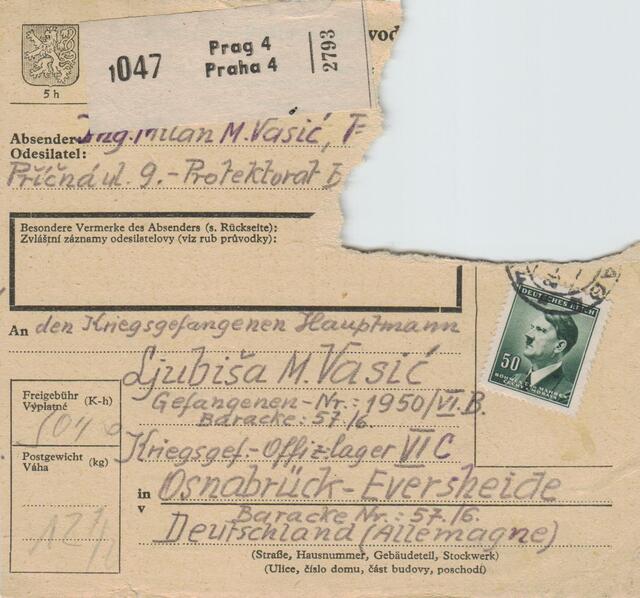 5 h
1047
Prag 4
Praha 4
2793
vod
Absender:
Odesílatel:
Ing. Milan M. Vasić, P
Příčná ul. 9.- Protektorat B
Besondere Vermerke des Absenders (s. Rückseite):
Zvláštní záznamy odesílatelovy (viz rub průvodky):
An den Kriegsgefangenen Hauptmann
Ljubiša M. Vasić
Gefangenen-Nr.: 1950/VI.B.
Baracke: 57/6
Kriegsgef.-Offizlager VI C
in Osnabrück-Eversheide
v
Baracke Nr.: 57./6.
Deutschland (Allemagne)
(Straße, Hausnummer, Gebäudeteil, Stockwerk)
(Ulice, číslo domu, část budovy, poschodí)
Freigebühr (K-h)
Výplatné
Postgewicht (kg)
Váha
DEUTSCHES REICH
50
BÖHMEN UND MÄHREN
ČECHY A MORAVA